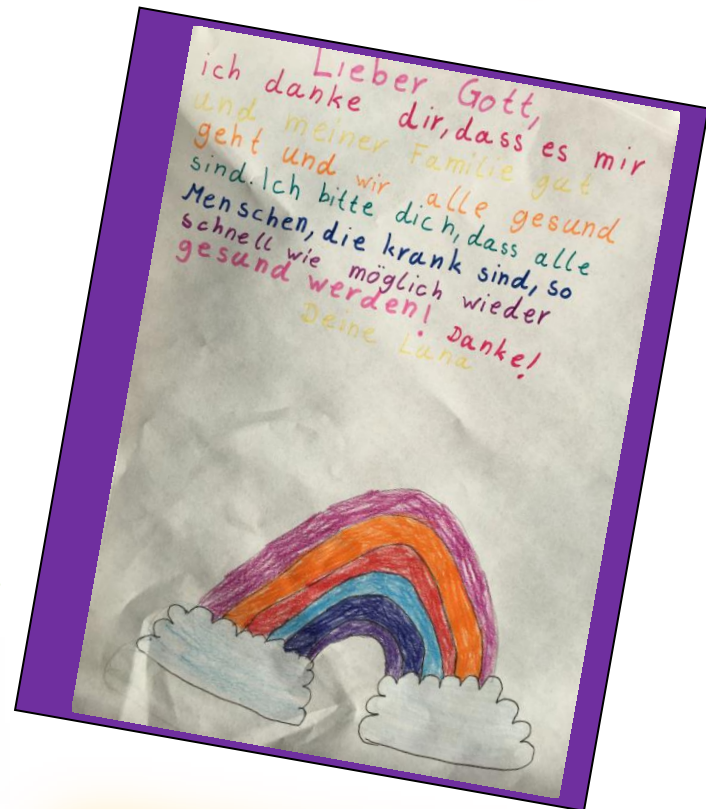 Lieber Gott,
ich danke dir, dass es mir
und meiner Familie gut
geht und wir alle gesund
sind. Ich bitte dich, dass alle
Menschen, die krank sind, so
schnell wie möglich wieder
gesund werden! Danke!
Deine Luna